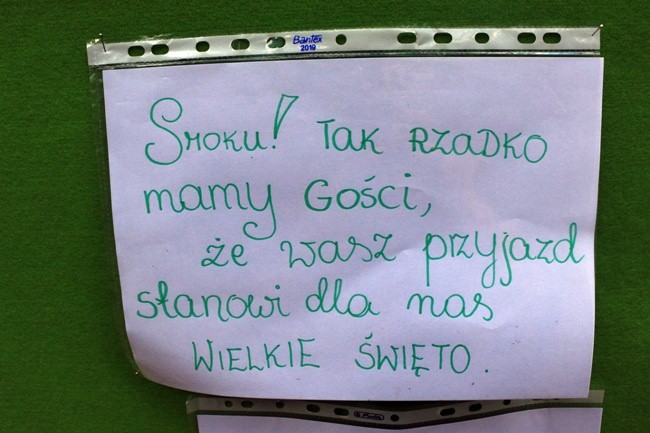 Bantex
2019
Smoku! TAK RZADKO
mamy Gości,
że wasz przyjazd
stanowi dla nas
WIELKIE ŚWIĘTO.